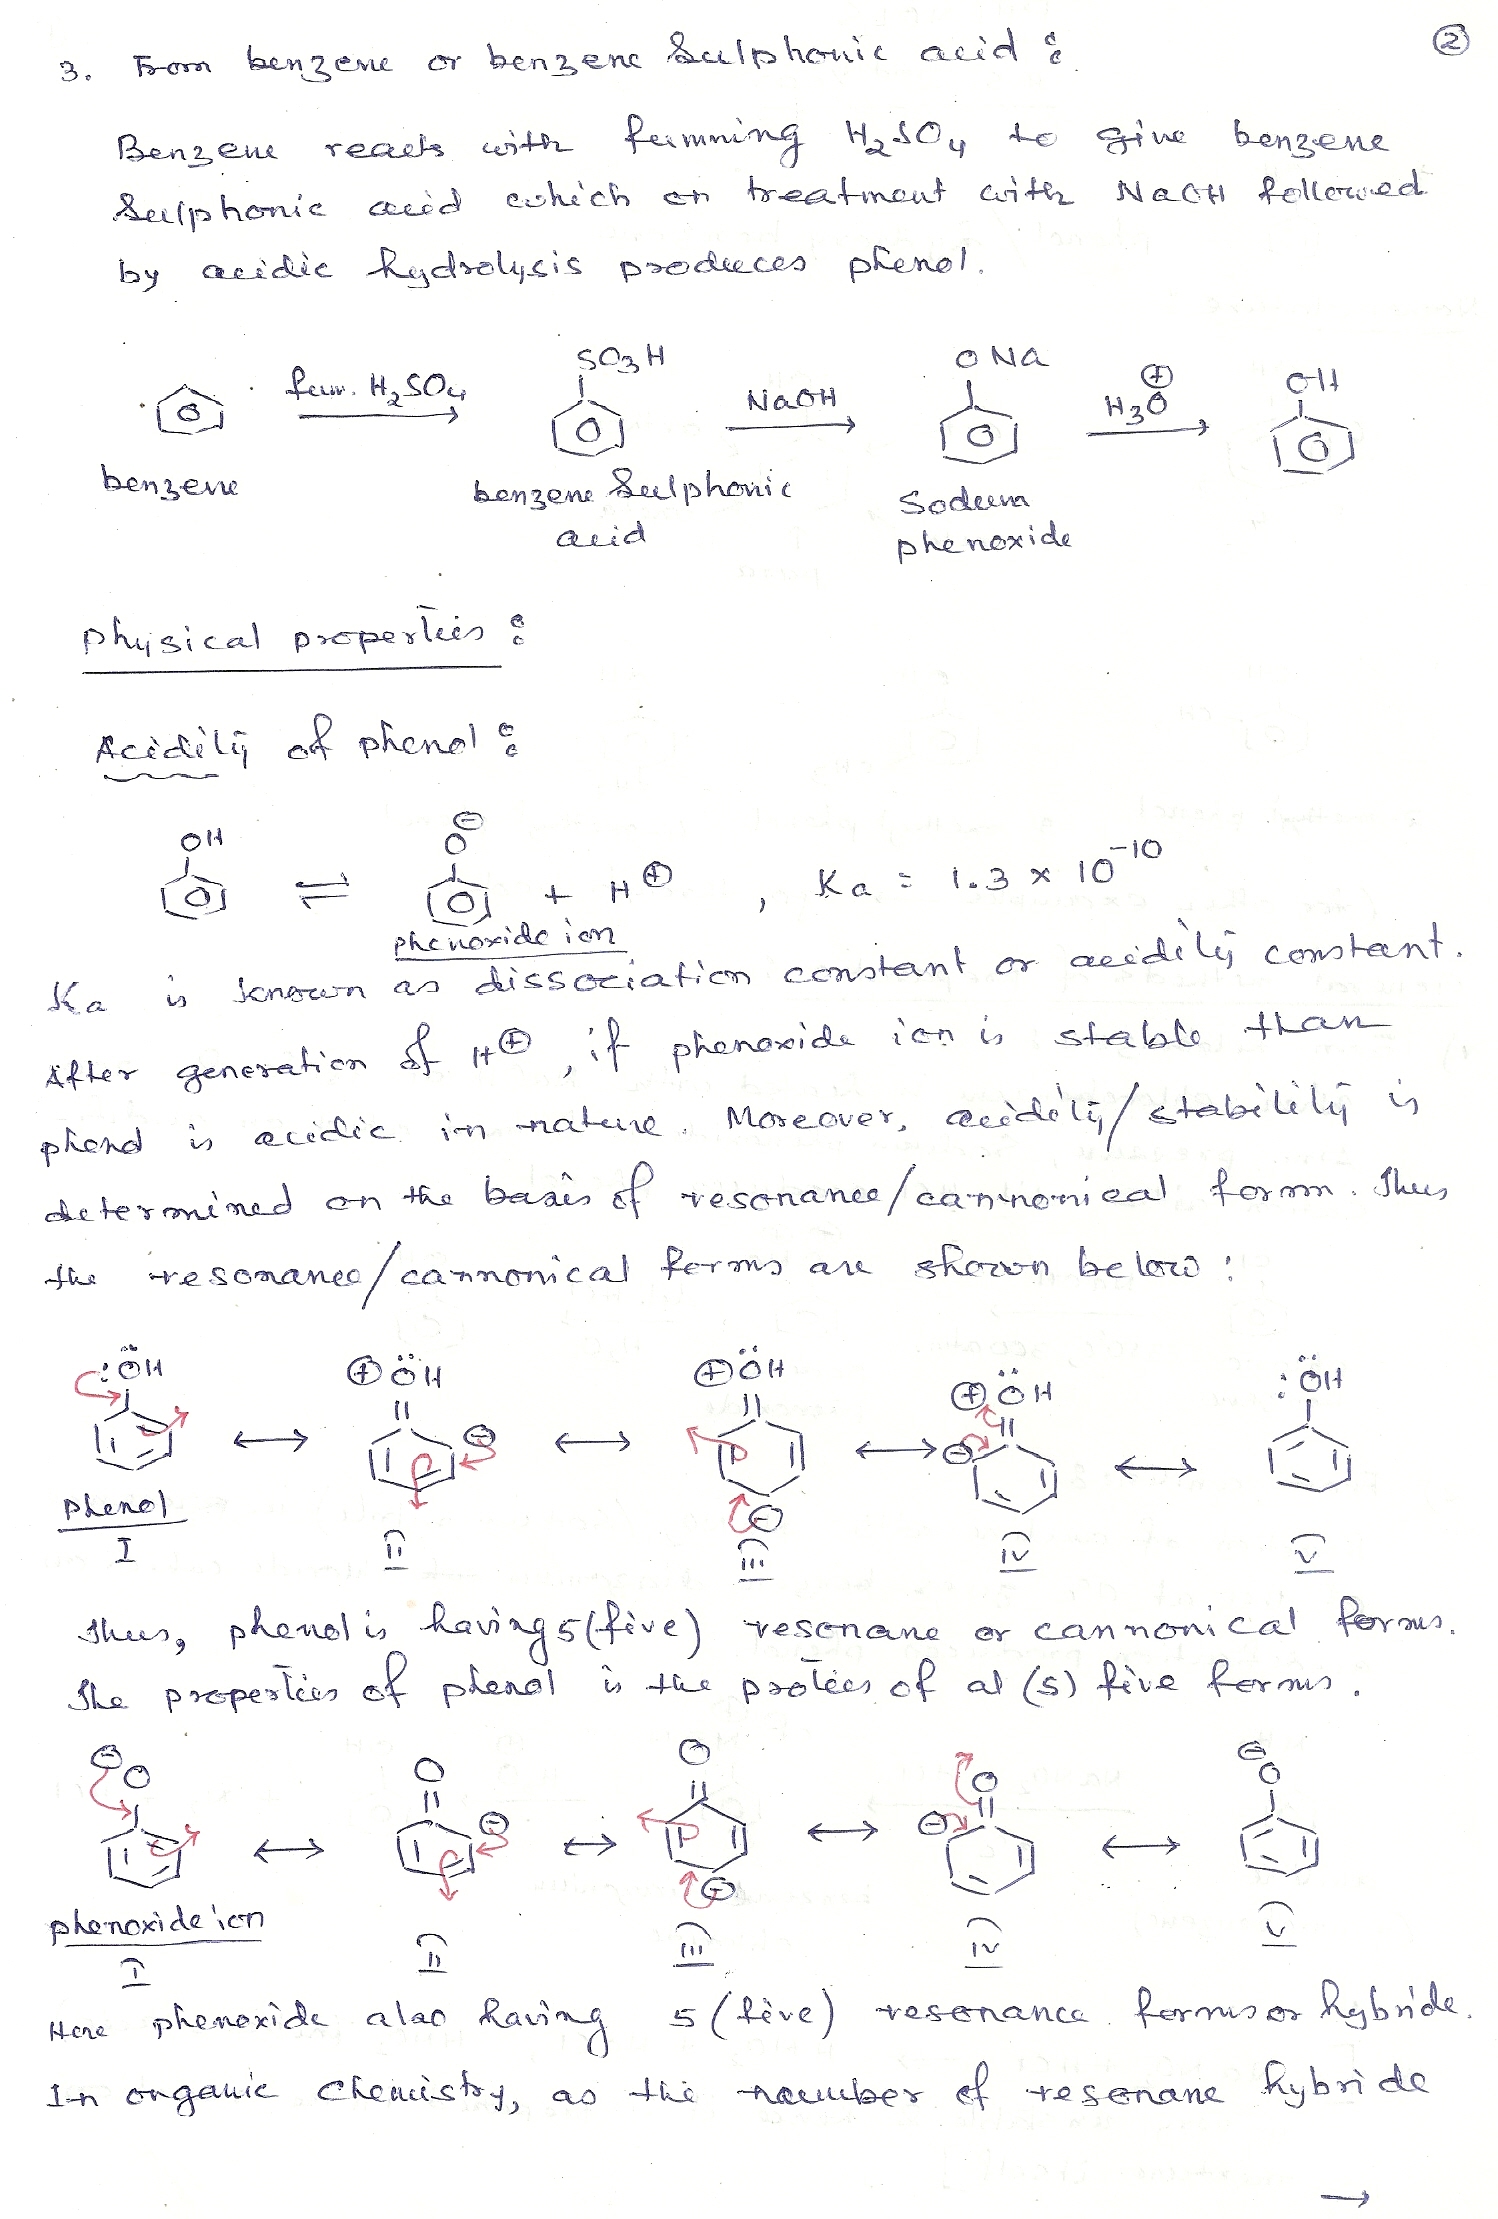 ②
3. From benzene or benzene Sulphonic acid :
Benzene reacts with fumming H₂SO₄ to give benzene
Sulphonic acid which on treatment with NaOH followed
by acidic hydrolysis produces phenol.
SO₃H ONa
fum. H₂SO₄ NaOH H₃O⊕ OH
benzene benzene Sulphonic acid Sodium phenoxide
Physical properties :
Acidity of phenol :
OH O⊖ + H⊕ , Ka = 1.3 × 10⁻¹⁰
phenoxide ion
Ka is known as dissociation constant or acidity constant.
After generation of H⊕, if phenoxide ion is stable than
phenol is acidic in nature. Moreover, acidity/stability is
determined on the basis of resonance/cannonical form. Thus
the resonance/cannonical forms are shown below :
:ÖH ⊕ÖH ⊕ÖH ⊕ÖH :ÖH
⊖ ⊖ ⊖
Phenol
I II III IV V
Thus, phenol is having 5 (five) resonane or cannonical forms.
The properties of phenol is the proties of al (5) five forms.
⊖O O O O ⊖O
⊖ ⊖ ⊖
phenoxide ion
I II III IV V
Here phenoxide also having 5 (five) resonance forms or hybride.
In organic chemistry, as the number of resonane hybride
→